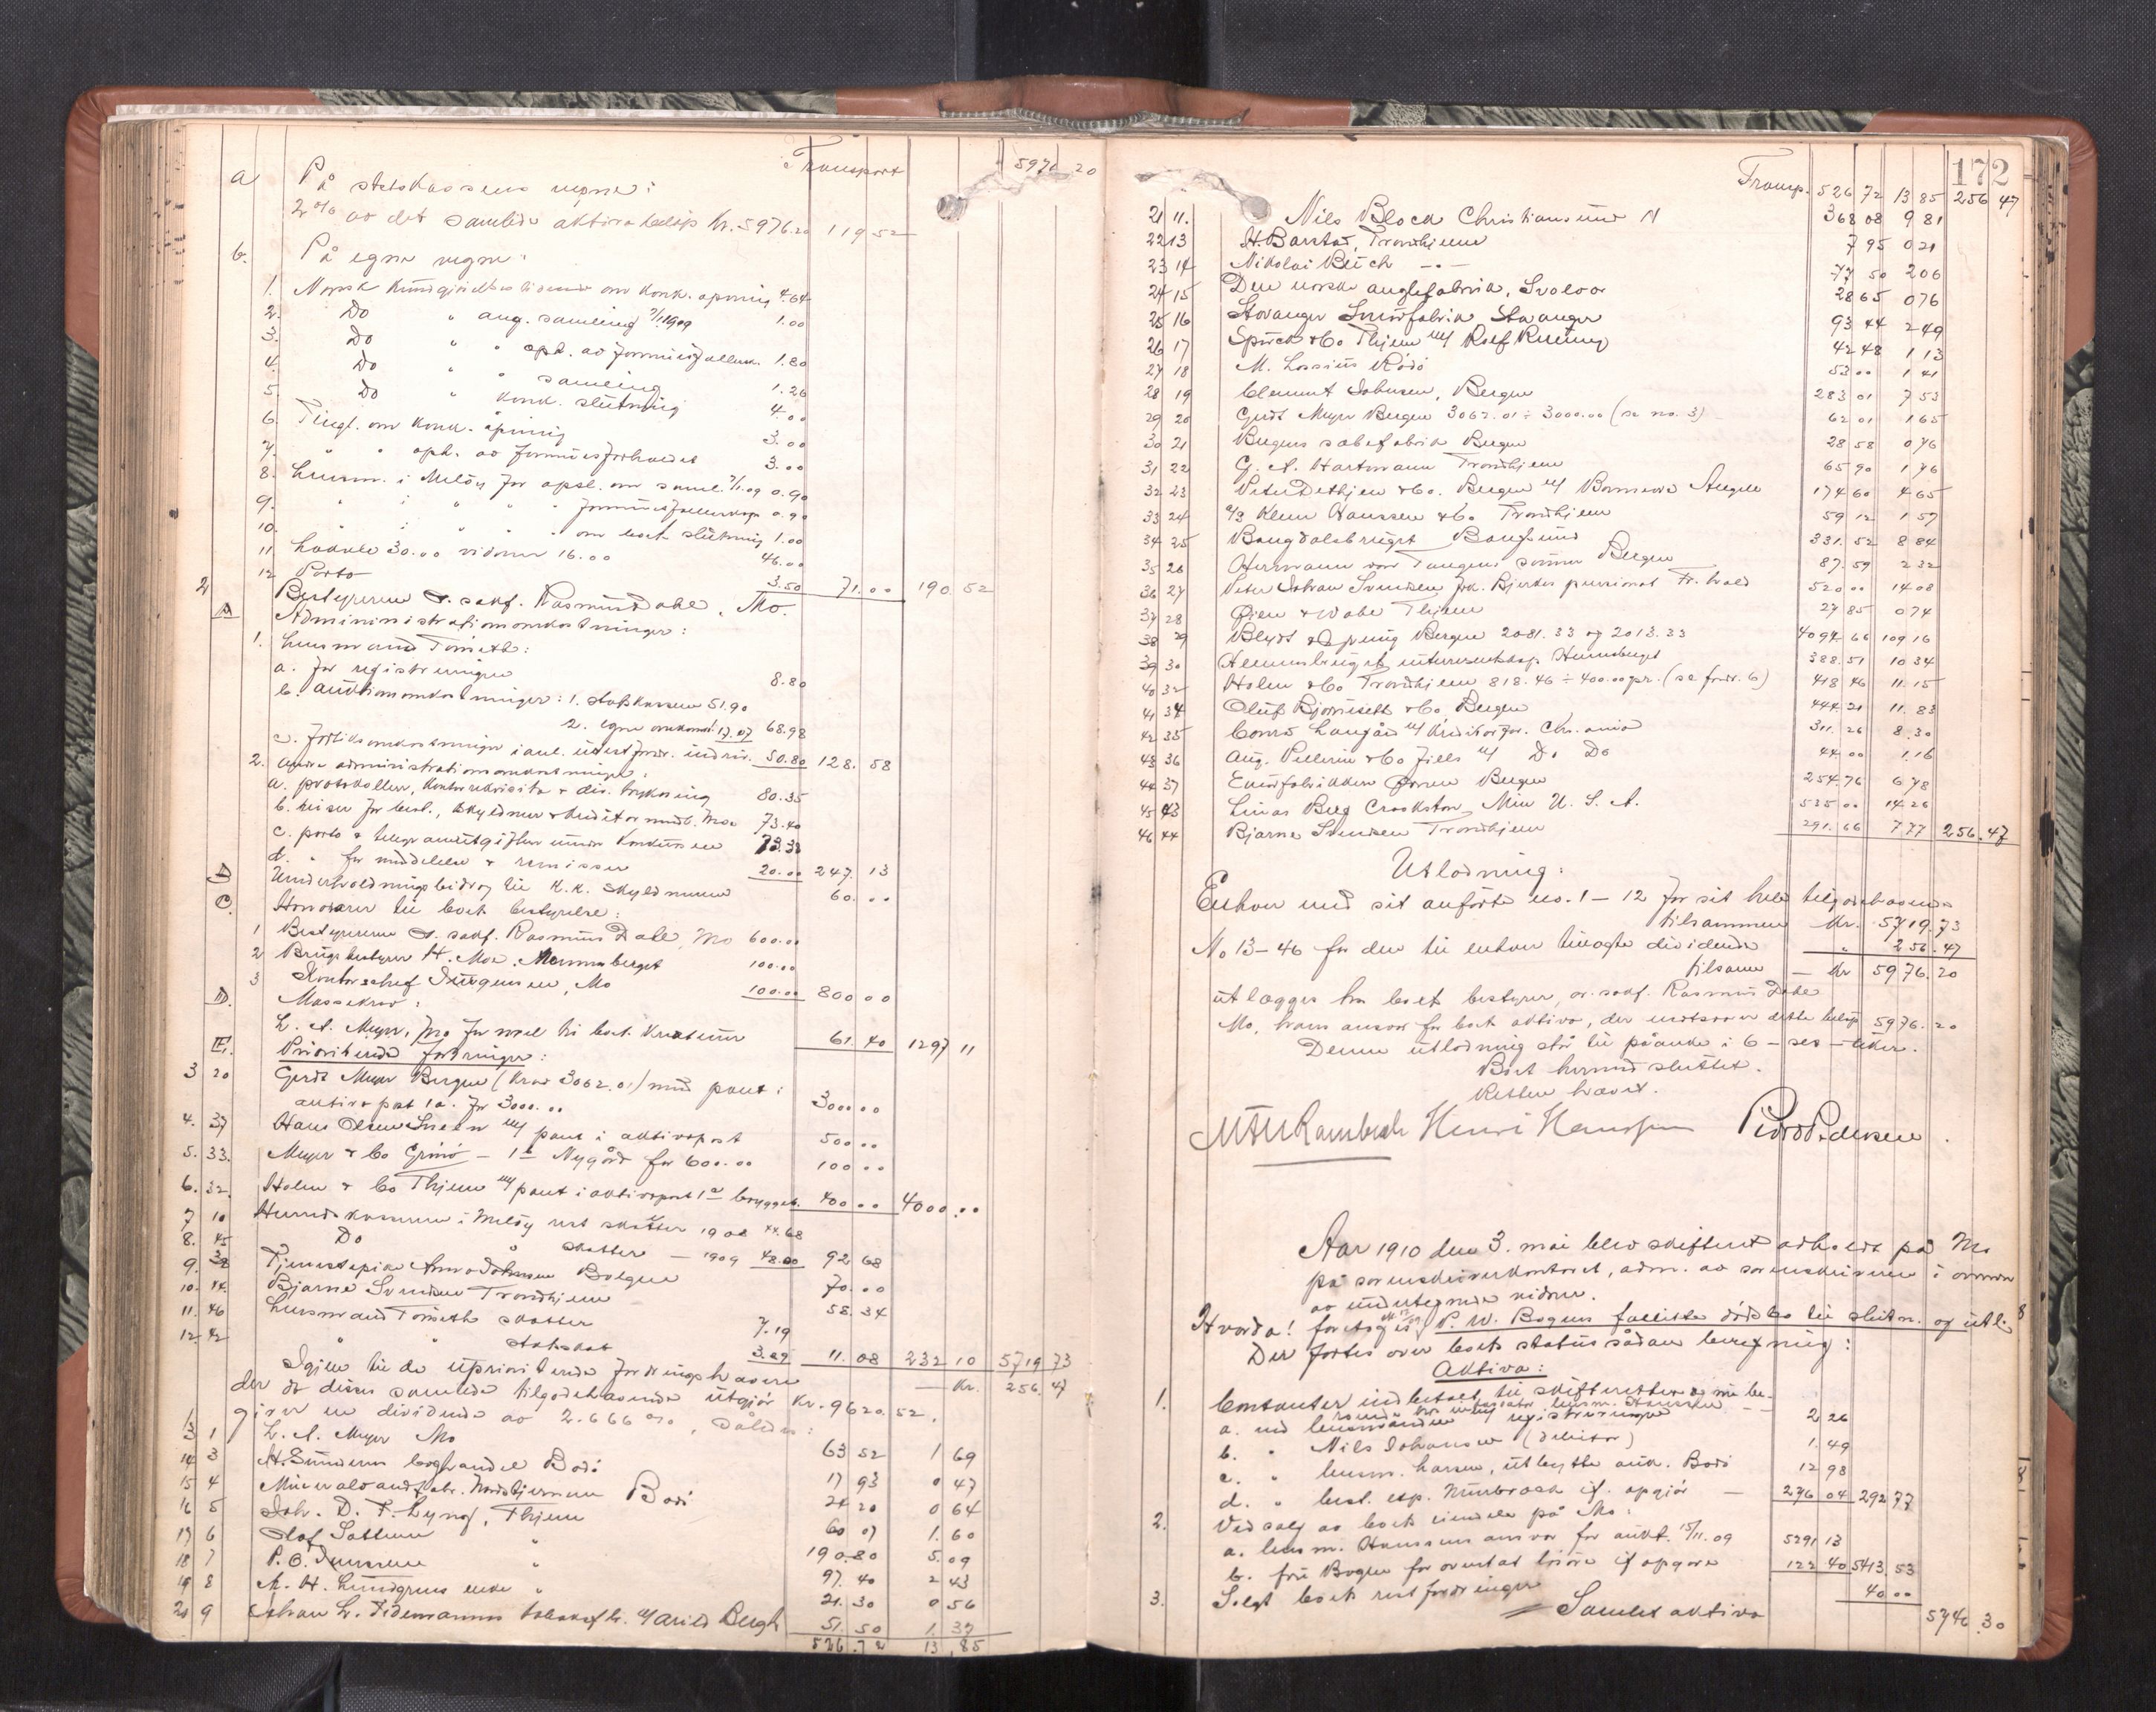 Transport 5976 20
a På statskassens regne:
2 % av det samlede aktivabeløp kr. 5976.20 119 52
b. På egne regne:
1. Norsk Kundgjørelsestidende om konk. åpning 4.64
2. Do " ang. samling 7/1 1909 1.00
3. Do " " oph. av formuesfællesk. 1.80
4. Do " " samling 1.26
5. Do " konk. slutning 4.00
6. Tingl. om konk. åpning 3.00
7. " " oph. av formuesforholdet 3.00
8. Lensm. i Meløy for opsl. om saml. 7/1.09 0.90
9. " i " " " formuesfællesskap 0.90
10. " i " " " om boets slutning 1.00
11. Lokale 30.00 vidner 16.00 46.00
12 Porto 3.50 71.00 190 52
2 Bestyreren o. sakf. Rasmus Dahl, Mo.
A Administrationsomkostninger:
1. Lensmand Tømeth:
a. for registreringen 8.80
b. auktionsomkostninger: 1. statskassen 51.90
2. egne omkostn. 17.07 68.98
c. forliksomkostninger i anl. utest. fordr. inddriv. 50.80 128.58
2. andre administrationsomkostninger:
a. protokoller, kontorrekvisita & div. trykning 80.35
b. reiser for best., skyldner & kreditormedl. Moe 73.40
c. porto & telegramutgifter under konkursen 73.38
d. " for meddelelse & remisser 20.00 247.13
B Underholdningsbidrag til k.k. skyldneren 60.00
C. Honorarer til boets bestyrelse:
1 Bestyreren o. sakf. Rasmus Dahl, Mo 600.00
2 Brugsbestyrer H. Moe, Hemnesberget 100.00
3 Kontorchef Jürgensen, Mo 100.00 800 00
D. Massekrav:
L. A. Meyer, Mo for mel til boets kreaturer 61.40 1297 11
E. Prioriterede fordringer:
3 20 Gerdt Meyer Bergen (krav 3062.01) med pant i
aktiva post 1a. for 3000.00 3000.00
4. 37 Hans Olsen m/ pant i aktivapost 500.00
5. 33. Meyer & Co Grimö – 1b Nygård for 600.00 100 00
6. 32. Holm & Co Thjem m/ pant i aktivapost 1a bryggeh. 400.00 4000.00
7 10 Herredskassereren i Meløy rest skatter 1908 44.68
8. 45 Do " skatter – 1909 48.00 92 68
9. 38 Tjenestepike Anna Johnsen Bolgen 70.00
10. 44. Bjarne Svendsen Trondhjem 58.34
11. 46 Lensmand Tømeth skatter 7.19
12 42 " " statsskat 3.89 11.08 232 10 5719 73
Igjen til de uprioriterede fordringshavere — Kr. 256.47
der da disses samlede tilgodehavende utgjør kr. 9620.52,
giver en dividende av 2.666 %, således:
13 1 L. A. Meyer Mo 63 52 1 69
14 3 A. Gundersens boghandel Bodø 17 93 0 47
15 4 Mineralvandfabr. Nordstjernen Bodø 24 20 0 64
16 5 Joh. D. F. Lyng, Thjem 60 07 1.60
17 6 Olof Sattem " 190.80 5.09
18 7 P. C. Jenssen " 97.40 2 43
19 8 M. H. Lundgrens enke " 21.30 0 56
20 9 Johan L. Tidemanns tobaksfbr. m/ Arild Bergh 51.50 1.37
526.72 13 85
172
Transp. 526 72 13 85 256 47
21 11. Nils Bloch Christiansund N 368 08 9 81
22 13 H. Barstad, Trondhjem 7 95 0 21
23 14 Nikolai Buch –"– 77 50 2 06
24 15 Den norske anglefabrik, Svolvær 28 65 0 76
25 16 Stavanger Smørfabrik Stavanger 93 44 2 49
26 17 Spörck & Co Thjem m/ Rolf Kiering 42 48 1 13
27 18 M. Lossius Rödö 53 00 1 41
28 19 Clement Johnsen, Bergen 283 01 7 53
29 20 Gerdt Meyer Bergen 3062.01 ÷ 3000.00 (se no. 3) 62 01 1 65
30 21 Bergens sæbefabrik Bergen 28 58 0 76
31 22 G. A. Hartmann Trondhjem 65 90 1 76
32 23 Peter Dethjen & Co. Bergen m/ 174 60 4 65
33 24 A/S Klem Hanssen & Co Trondhjem 59 12 1 57
34 25 Bangdalsbruget Bangsund 331.52 8 84
35 26 Herrmann von Tangens sønner Bergen 87.59 2 32
36 27 Peter Johan Svendsen frk. Bjerkes pensionat Fr.hald 520 00 14 08
37 28 Øien & Wahl Thjem 27 85 0 74
38 29 Blydt & Spring Bergen 2081.33 og 2013.33 4094 66 109 16
39 30 Hemnesbergets interessentskap Hemnesberget 388.51 10 34
40 32 Holm & Co Trondhjem 818.46 ÷ 400.00 pr. (se fordr. 6) 418 46 11.15
41 34 Oluf Bjørnseth & Co Bergen 444.21 11.83
42 35 Conrad Langård m/ Kreditorfor. Chr.ania 311.26 8.30
43 36 Aug. Pellerin & Co fills m/ Do Do 44.00 1.16
44 37 Smørfabrikken Ørnen Bergen 254.76 6 78
45 43 Linas Berg Crookston, Min U. S. A. 535 00 14.26
46 44 Bjarne Svendsen Trondhjem 291.66 7.77 256.47
Utlodning:
Enhver med sit anførte no. 1 – 12 for sit hele tilgodehavende
tilsammen kr. 5719.73
No 13–46 for den til enhver tillagte dividende " 256.47
tilsammen — Kr 5976.20
utlægges hos boets bestyrer, o. sakf. Rasmus Dahl
Mo, hans ansvar for boets aktiva, der motsvarer dette beløp 5976.20
Denne utlodning står til påanke i 6 – seks – uker.
Boet hermed sluttet.
Retten hævet.
MAURambech Henri Hansen Peder Pedersen.
Aar 1910 den 3. mai blev skifteret avholdt på Mo
på sorenskriverkontoret, adm. av sorenskriveren i overvær
av undertegnede vidner.
Hvorda! foretoges P. W. Bogens fallitte dødsbo til slutn. og utl.
Der førtes over boets status sådan beregning:
Aktiva:
1. Contanter indbetalt til skifteretten & nu be-
roende hos
a. ved lensmanden m/ registreringen 2 26
b. " Nils Johansen (debitor) 1.49
c. " lensm. Larsen, utbytte auk. Bodø 12 98
d. " best. exp. Nürbrock if. opgjør – 276 04 292 77
2. Ved salg av boets eiendele på Mo:
a. lensm. Hanssens ansvar for aukt. 15/11.09 5291 13
b. fru Bogen for overtat løsøre if opgave 122 40 5413.53
3. Solgt boets rest fordringer 40 00
Samlet aktiva 5746.30